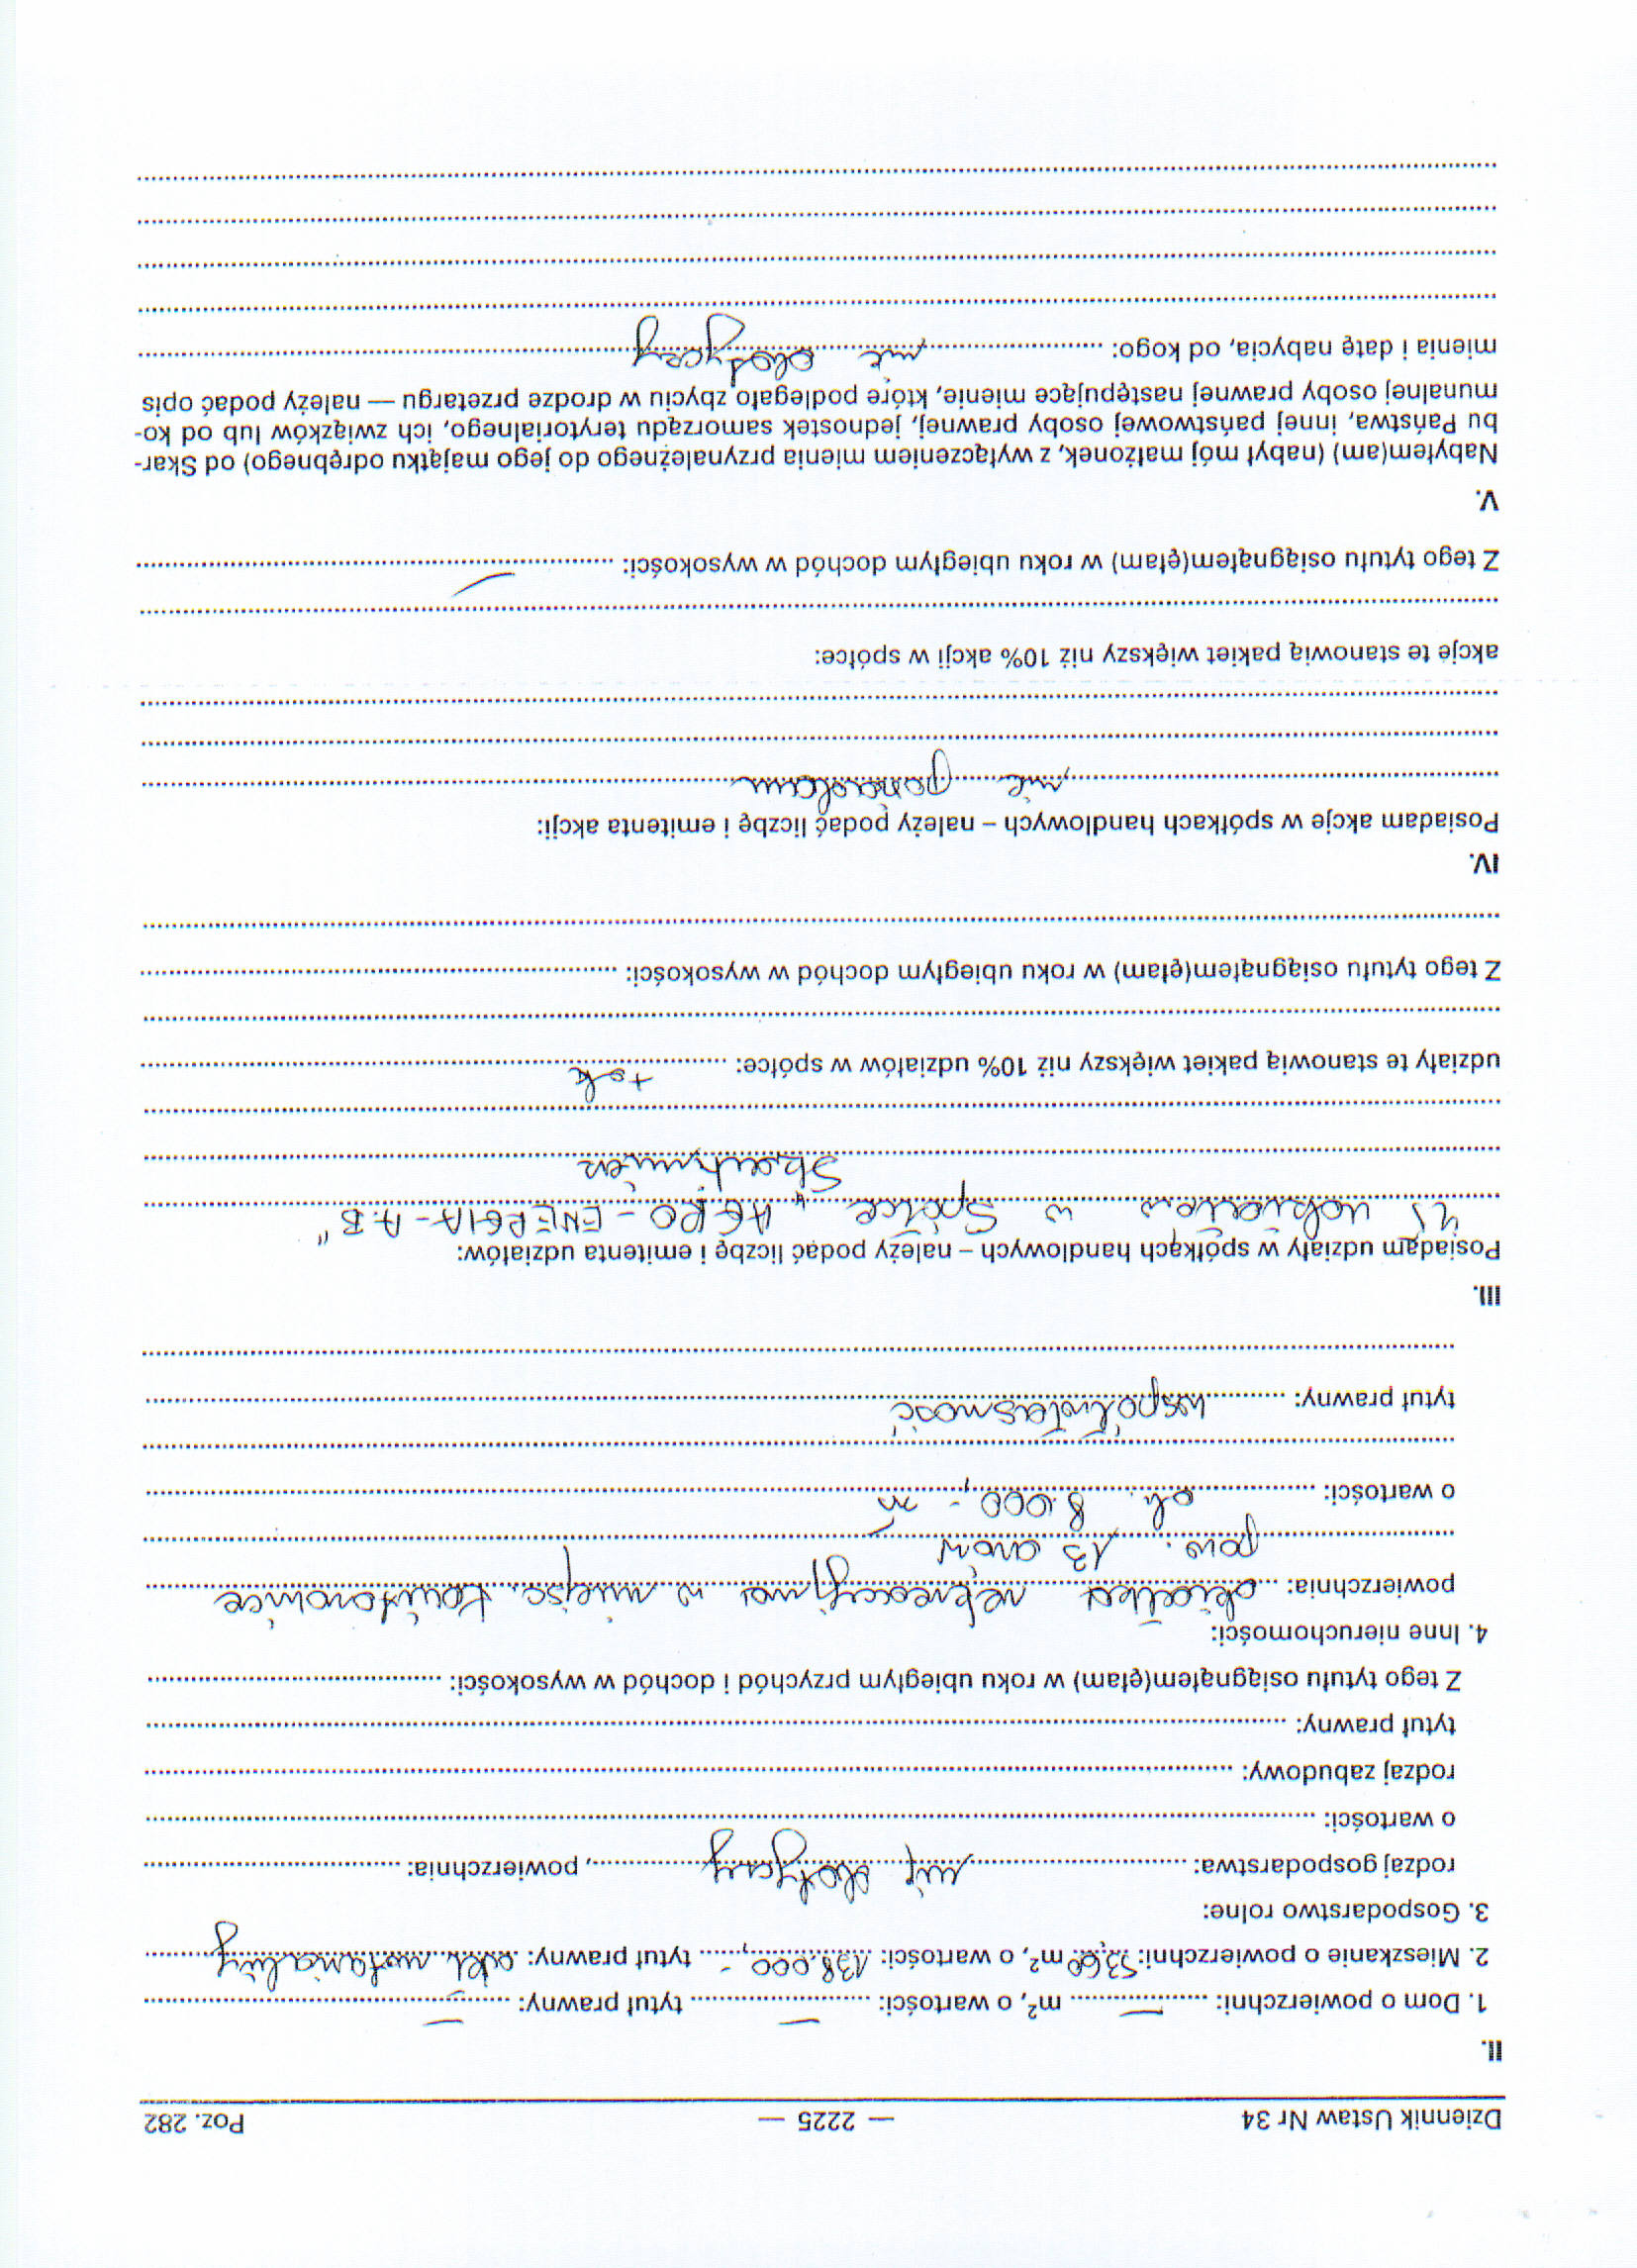 Dziennik Ustaw Nr 34 — 2225 — Poz. 282
II.
1. Dom o powierzchni: ........ — ........ m², o wartości: ........ — ........ tytuł prawny: ........ — ........
2. Mieszkanie o powierzchni: 53,60 m², o wartości: 138.000,- tytuł prawny: akt notarialny
3. Gospodarstwo rolne:
rodzaj gospodarstwa: ........ nie dotyczy ........, powierzchnia: ........
o wartości: ........
rodzaj zabudowy: ........
tytuł prawny: ........
Z tego tytułu osiągnąłem(ęłam) w roku ubiegłym przychód i dochód w wysokości: ........
4. Inne nieruchomości:
powierzchnia: działka rekreacyjna w miejsc.
pow. 13 arów
o wartości: ok. 8.000,- zł
tytuł prawny: współwłasność
III.
Posiadam udziały w spółkach handlowych – należy podać liczbę i emitenta udziałów:
udziałów w Spółce "AGRO-ENERGIA-A.B"
udziały te stanowią pakiet większy niż 10% udziałów w spółce: tak
Z tego tytułu osiągnąłem(ęłam) w roku ubiegłym dochód w wysokości: ........
IV.
Posiadam akcje w spółkach handlowych – należy podać liczbę i emitenta akcji:
nie posiadam
akcje te stanowią pakiet większy niż 10% akcji w spółce:
Z tego tytułu osiągnąłem(ęłam) w roku ubiegłym dochód w wysokości: ........ —
V.
Nabyłem(am) (nabył mój małżonek, z wyłączeniem mienia przynależnego do jego majątku odrębnego) od Skar-
bu Państwa, innej państwowej osoby prawnej, jednostek samorządu terytorialnego, ich związków lub od ko-
munalnej osoby prawnej następujące mienie, które podlegało zbyciu w drodze przetargu — należy podać opis
mienia i datę nabycia, od kogo: ........ nie dotyczy ........